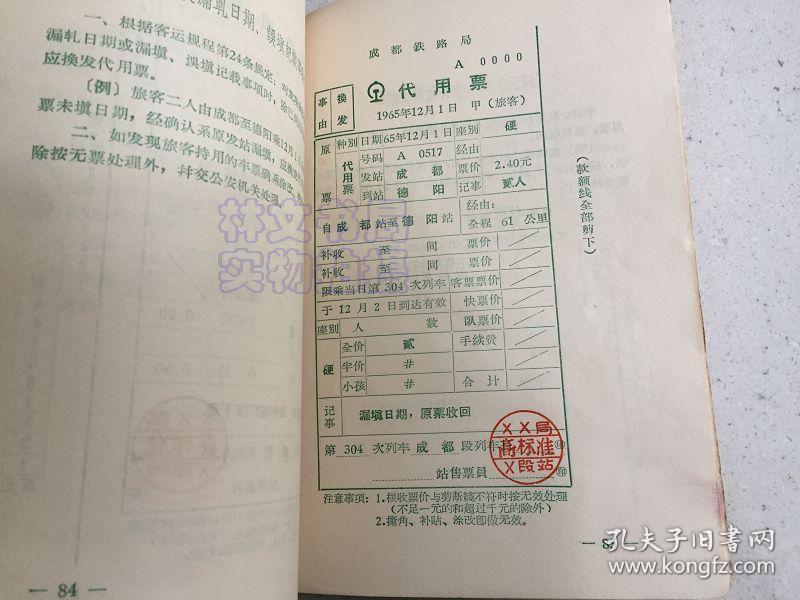 漏轧日期、誤填記載
一、根据客运规程第24条规定，对发
漏轧日期或漏填、误填记载事项时，除
应换发代用票。
〔例〕旅客二人由成都至德阳乘12月1
票未填日期，经确认系原发站漏填，应换发
二、如发现旅客持用的车票确系
除按无票处理外，并交公安机关处理
— 84 —
成都鉄路局
A 0000
事由 换发
代用票
1965年12月1日 甲（旅客）
原票
种别 日期 65年12月1日 座别 硬
代用票 号码 A 0517 经由
发站 成都 票价 2.40元
到站 德阳 記事 貳人
自成都站至德阳站 经由：
全程 61 公里
补收 至 间 票价
补收 至 间 票价
限乘当日第304次列车 客票票价
于12月2日到达有效 快票价
座别 人数 臥票价
硬 全价 貳 手续費
半价 #
小孩 # 合计
記事 漏填日期，原票收回
第304次列车成都段列车
站售票員 印
××局
高标准
×段站
注意事項：1.核收票价与剪断綫不符时按无效处理
（不足一元的和超过千元的除外）
2.撕角、补贴、涂改卽做无效。
（款额线全部剪下）
林文书局
实物拍摄
孔夫子旧书网
kongfz.com